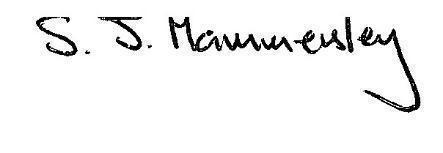 S. J. Hammersley